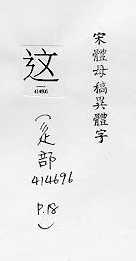 宋體母稿異體字
这
414696
（辵部
414696
P.18
）